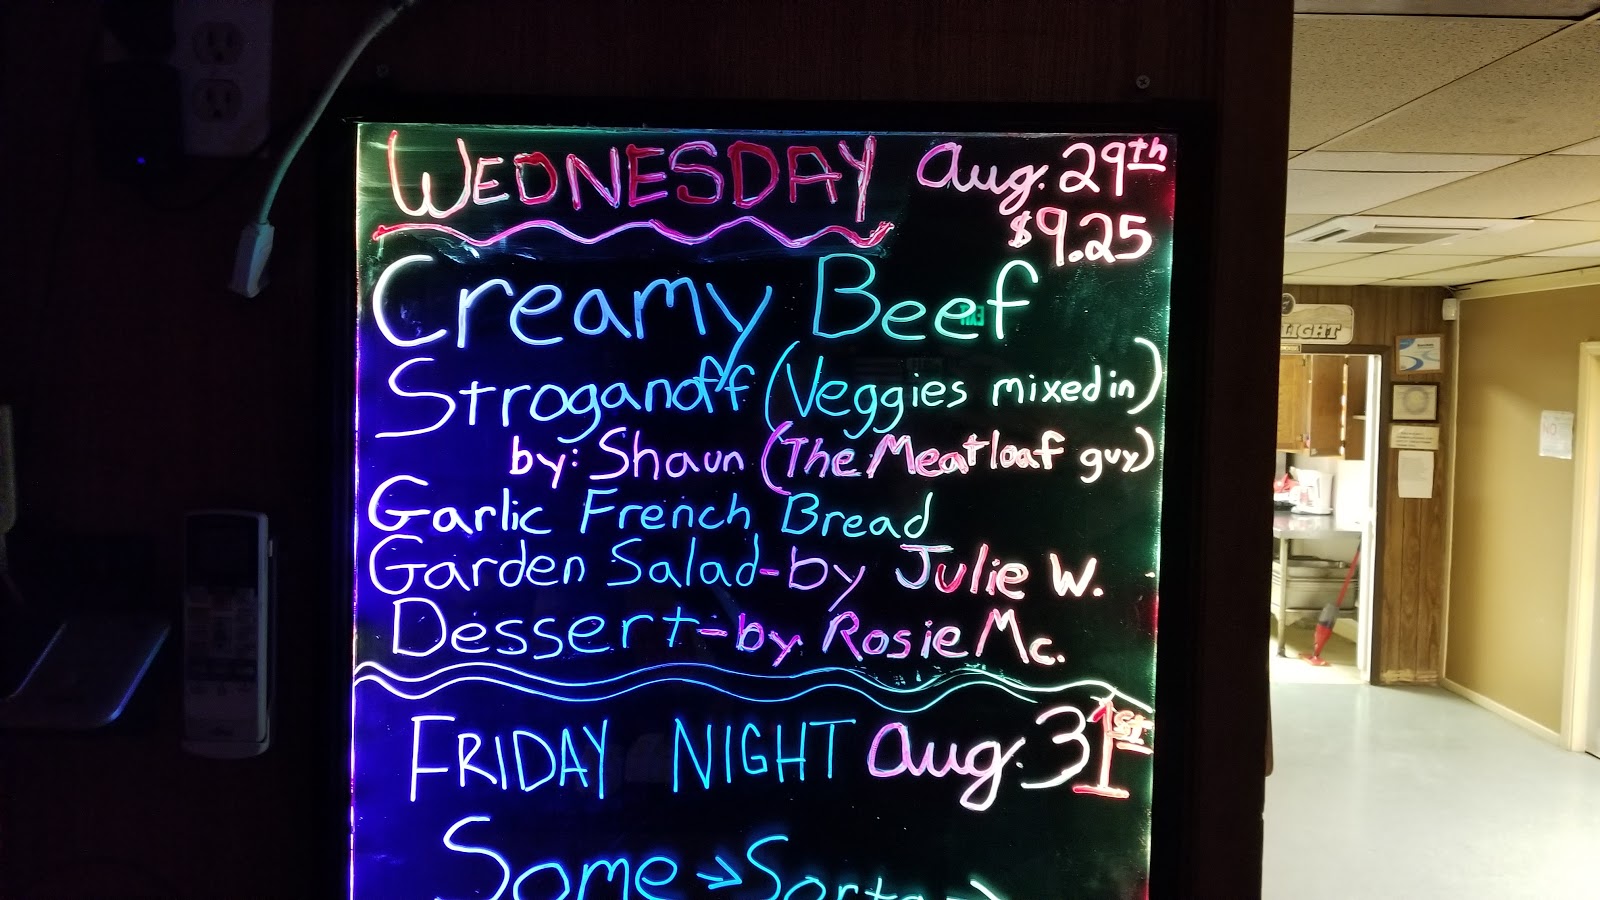 WEDNESDAY Aug. 29th
$9.25
Creamy Beef
Stroganoff (Veggies mixed in)
by: Shaun (The Meatloaf guy)
Garlic French Bread
Garden Salad - by Julie W.
Dessert - by Rosie Mc.
FRIDAY NIGHT Aug. 31st
Some → Sorta →
EXIT
LIGHT
NO